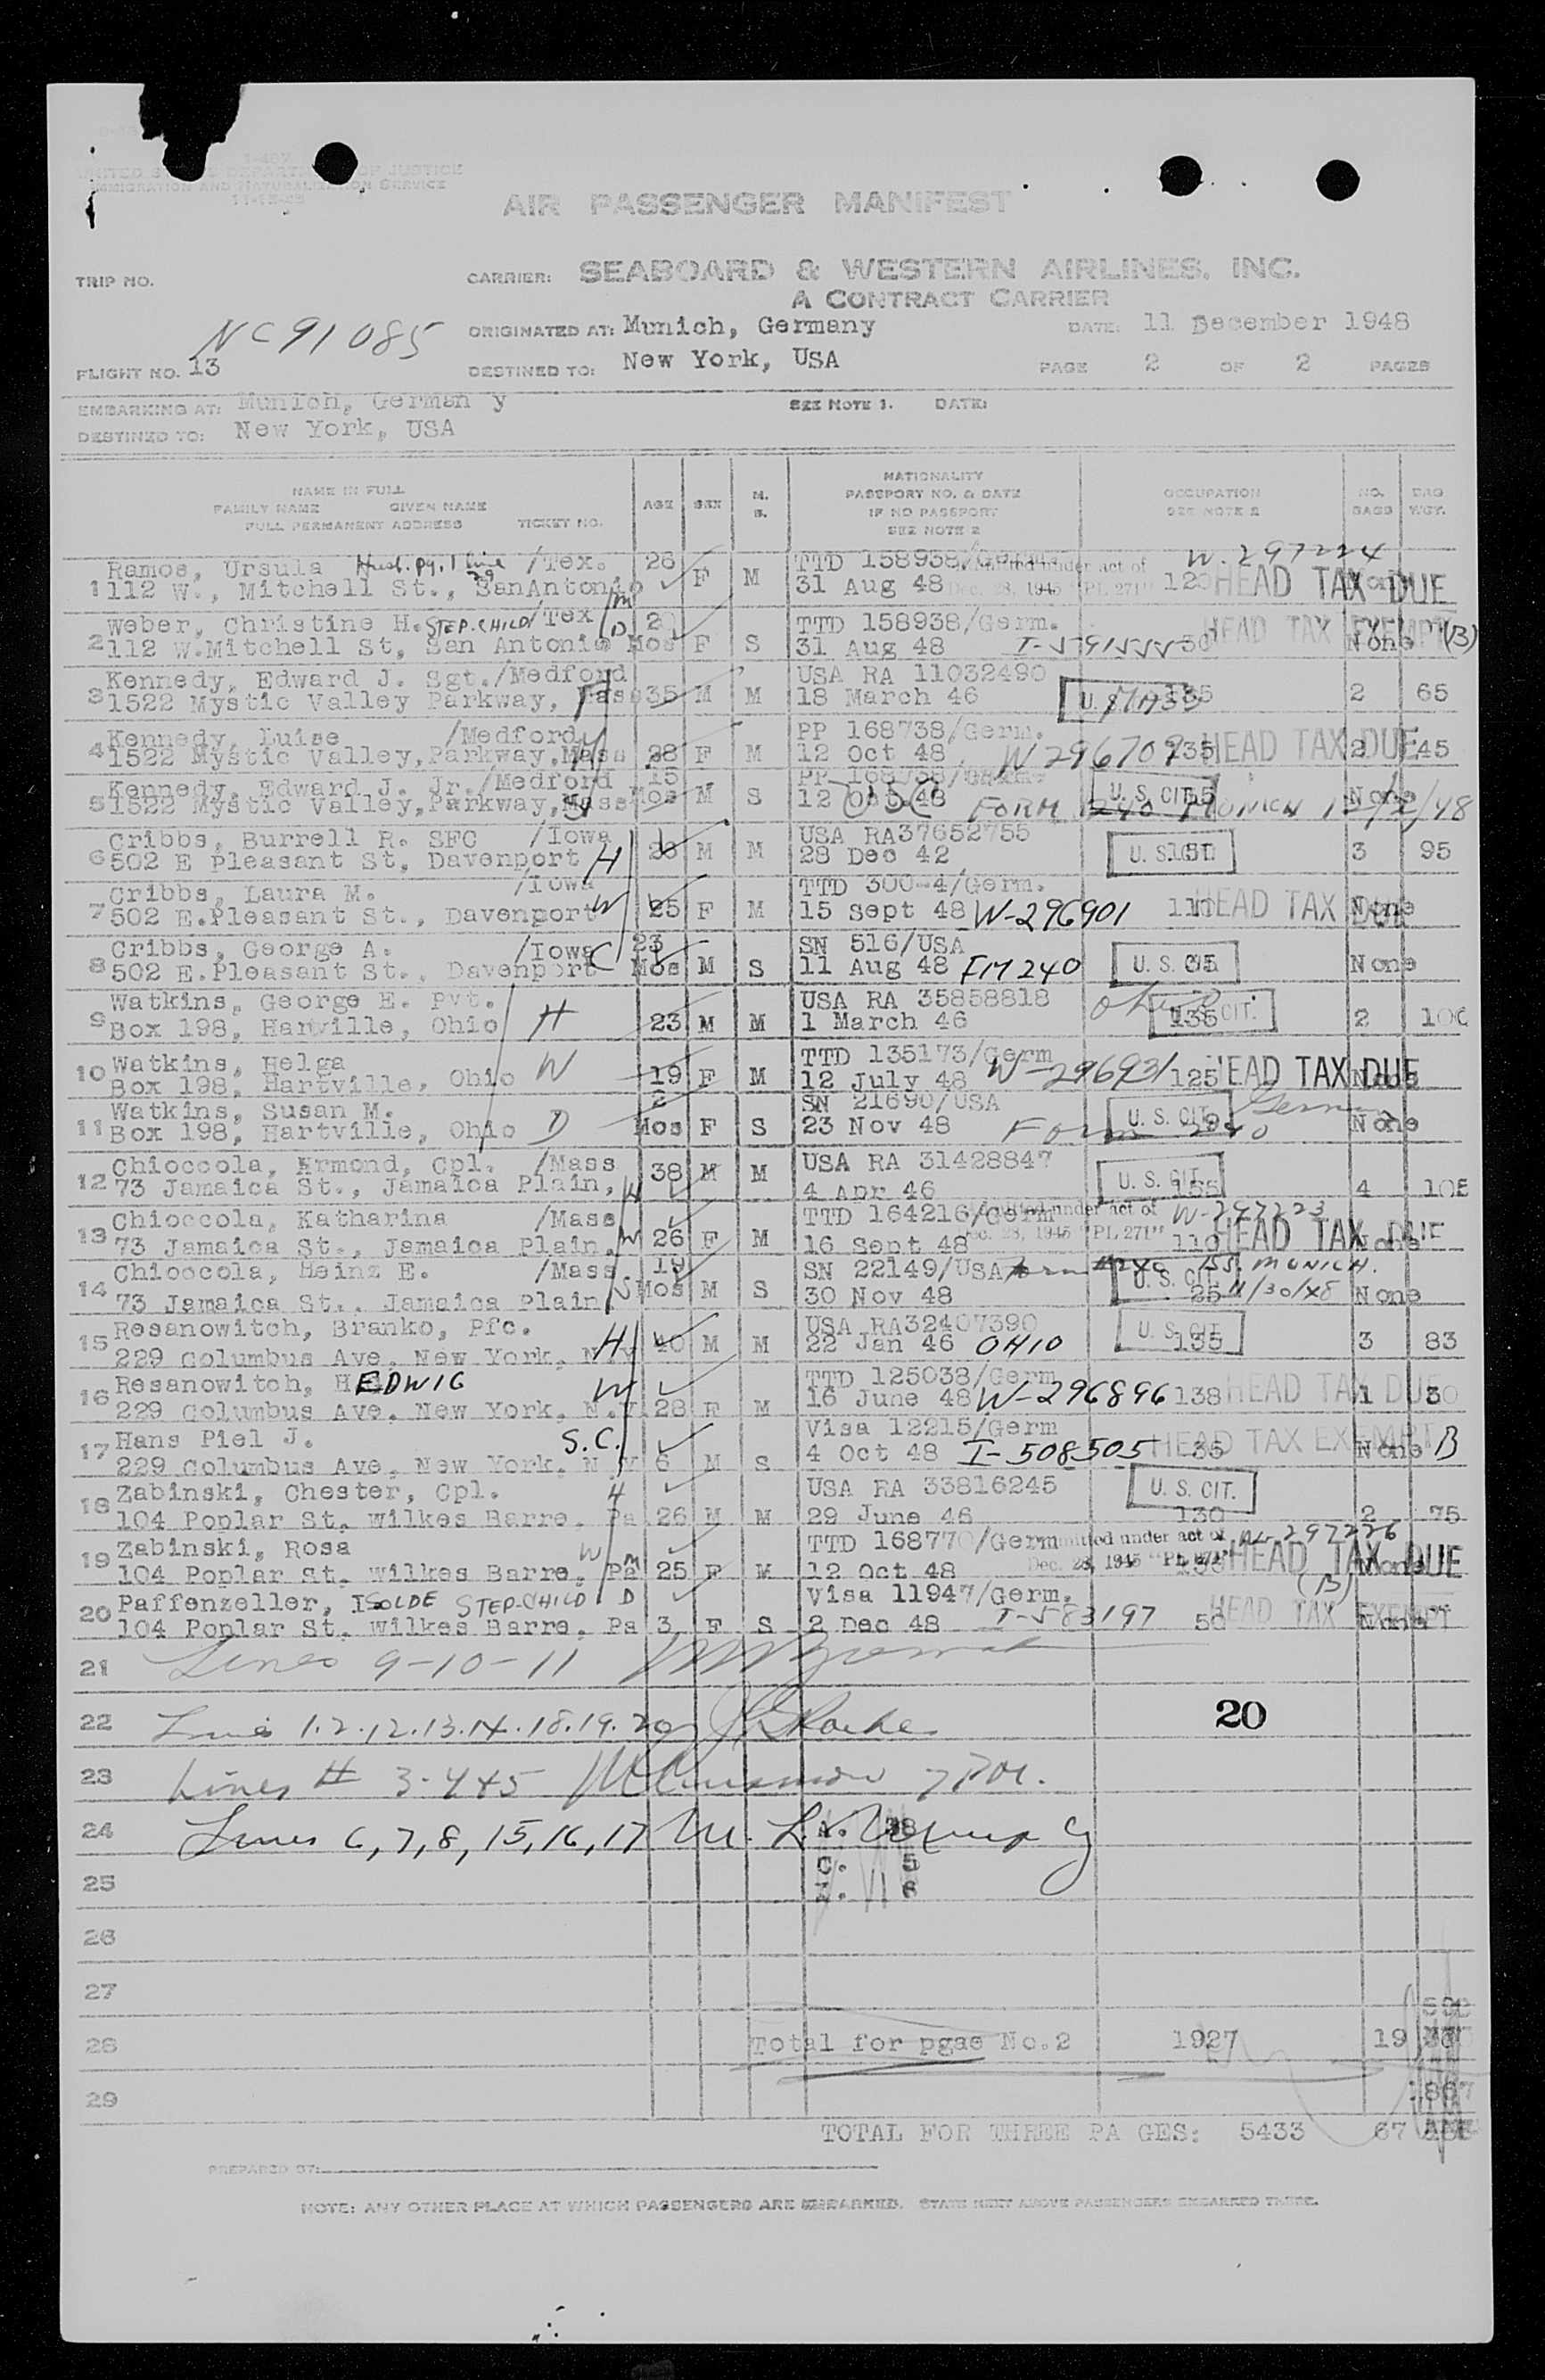 I-467
UNITED STATES DEPARTMENT OF JUSTICE
IMMIGRATION AND NATURALIZATION SERVICE
AIR PASSENGER MANIFEST
TRIP NO.
CARRIER: SEABOARD & WESTERN AIRLINES, INC.
A CONTRACT CARRIER
NC91085
ORIGINATED AT: Munich, Germany DATE: 11 December 1948
FLIGHT NO. 13 DESTINED TO: New York, USA PAGE 2 OF 2 PAGES
EMBARKING AT: Munich, German y SEE NOTE 1. DATE:
DESTINED TO: New York, USA
NAME IN FULL
FAMILY NAME GIVEN NAME
FULL PERMANENT ADDRESS TICKET NO.
AGE SEX M. S.
NATIONALITY
PASSPORT NO. & DATE
IF NO PASSPORT
SEE NOTE 2
OCCUPATION
SEE NOTE 2
NO. BAGS
BAG WGT.
Ramos, Ursula /Tex. 26 TTD 158938/Germ. Admitted under act of W-297224
1 112 W., Mitchell St., SanAntonio F M 31 Aug 48 Dec. 28, 1945 "PL 271" HEAD TAX DUE
Weber, Christine H. STEP-CHILD /Tex 20 TTD 158938/Germ. HEAD TAX EXEMPT (B)
2 112 W.Mitchell St, San Antonio Mos F S 31 Aug 48 50 None
Kennedy, Edward J. Sgt./Medford USA RA 11032490
3 1522 Mystic Valley Parkway, Mass 35 M M 18 March 46 2 65
Kennedy, Luise /Medford PP 168738/Germ.
4 1522 Mystic Valley,Parkway,Mass 28 F M 12 Oct 48 W296709 135 HEAD TAX DUE 2 45
Kennedy, Edward J. Jr./Medford 15 PP 168738/Germ.
5 1522 Mystic Valley,Parkway,Mass Mos M S 12 Oct 48 USC FORM 240 MUNICH U. S. CIT. None
Cribbs, Burrell R. SFC /Iowa USA RA37652755
6 502 E Pleasant St, Davenport H M M 28 Dec 42 U. S. CIT. 3 95
Cribbs, Laura M. /Iowa TTD 300-4/Germ.
7 502 E.Pleasant St., Davenport W 25 F M 15 Sept 48 W-296901 110 HEAD TAX DUE None
Cribbs, George A. /Iowa 23 SN 516/USA
8 502 E.Pleasant St., Davenport C Mos M S 11 Aug 48 FM 240 U. S. CIT. 35 None
Watkins, George E. Pvt. USA RA 35858818
9 Box 198, Hartville, Ohio H 23 M M 1 March 46 135 U. S. CIT. 2 100
Watkins, Helga TTD 135173/Germ
10 Box 198, Hartville, Ohio W 19 F M 12 July 48 W-296931 125 HEAD TAX DUE None
Watkins, Susan M. 2 SN 21690/USA
11 Box 198, Hartville, Ohio D Mos F S 23 Nov 48 Form 240 U. S. CIT. 9 Germ None
Chioccola, Ermond, Cpl. /Mass USA RA 31428847
12 73 Jamaica St., Jamaica Plain, H 38 M M 4 Apr 46 U. S. CIT. 155 4
Chioccola, Katharina /Mass TTD 164216/Germ Admitted under act of W-297223
13 73 Jamaica St., Jamaica Plain, W 26 F M 16 Sept 48 Dec. 28, 1945 "PL 271" 110 HEAD TAX DUE None
Chioccola, Heinz E. /Mass 19 SN 22149/USA Form #240 ISS. MUNICH.
14 73 Jamaica St., Jamaica Plain, S Mos M S 30 Nov 48 U. S. CIT. 25 11/30/48 None
Resanowitch, Branko, Pfc. USA RA32407390
15 229 Columbus Ave. New York, N.Y H 40 M M 22 Jan 46 OHIO U. S. CIT. 135 3 83
Resanowitch, HEDWIG TTD 125038/Germ
16 229 Columbus Ave. New York, N.Y W 28 F M 16 June 48 W-296896 138 HEAD TAX DUE 1 30
Hans Piel J. S.C. Visa 12215/Germ
17 229 Columbus Ave. New York, N.Y 6 M S 4 Oct 48 I-508505 35 HEAD TAX EXEMPT None B
Zabinski, Chester, Cpl. H USA RA 33816245
18 104 Poplar St. Wilkes Barre, Pa 26 M M 29 June 46 U. S. CIT. 130 2 75
Zabinski, Rosa W TTD 168770/Germ Admitted under act of W-297226
19 104 Poplar St. Wilkes Barre, Pa 25 F M 12 Oct 48 Dec. 28, 1945 "PL 271" HEAD TAX DUE None
Paffenzeller, ISOLDE STEP-CHILD D Visa 11947/Germ. (B)
20 104 Poplar St. Wilkes Barre, Pa 3 F S 2 Dec 48 I-583197 50 HEAD TAX EXEMPT None
21 Lines 9-10-11
22 Lines 1.2.12.13.14.18.19.20 20
23 Lines # 3-4&5
24 Lines 6,7,8,15,16,17
25 C. 5
26
27
28 Total for pgae No.2 1927 19
29
TOTAL FOR THREE PA GES: 5433 67
PREPARED BY:
NOTE: ANY OTHER PLACE AT WHICH PASSENGERS ARE EMBARKED. STATE NEXT ABOVE PASSENGERS EMBARKED THERE.